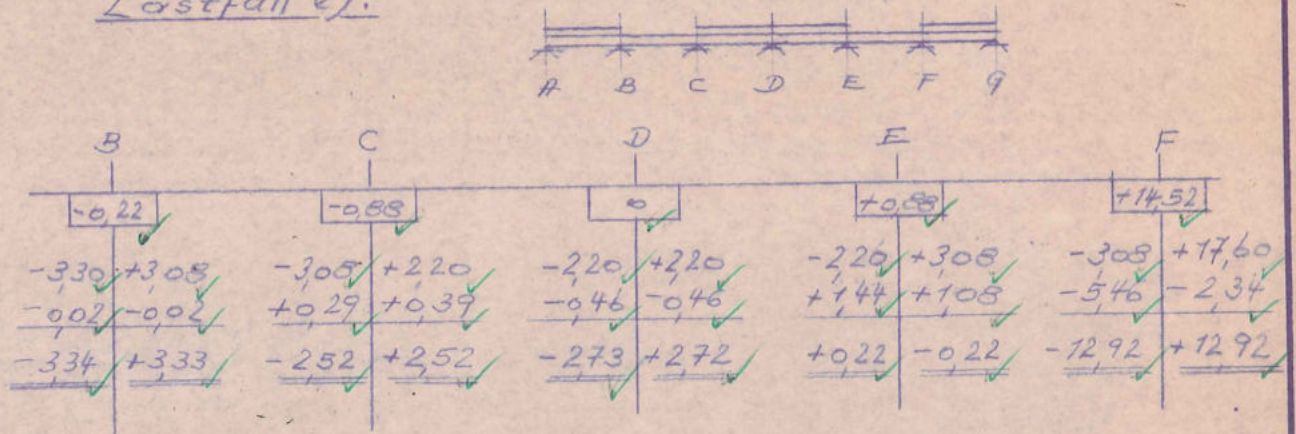 Lastfall e).
A B C D E F G
B C D E F
-0,22 -0,88 0 +0,88 +14,52
-3,30 +3,08 -3,08 +2,20 -2,20 +2,20 -2,20 +3,08 -3,08 +17,60
-0,02 -0,02 +0,29 +0,39 -0,46 -0,46 +1,44 +1,08 -5,46 -2,34
-3,34 +3,33 -2,52 +2,52 -2,73 +2,72 +0,22 -0,22 -12,92 +12,92